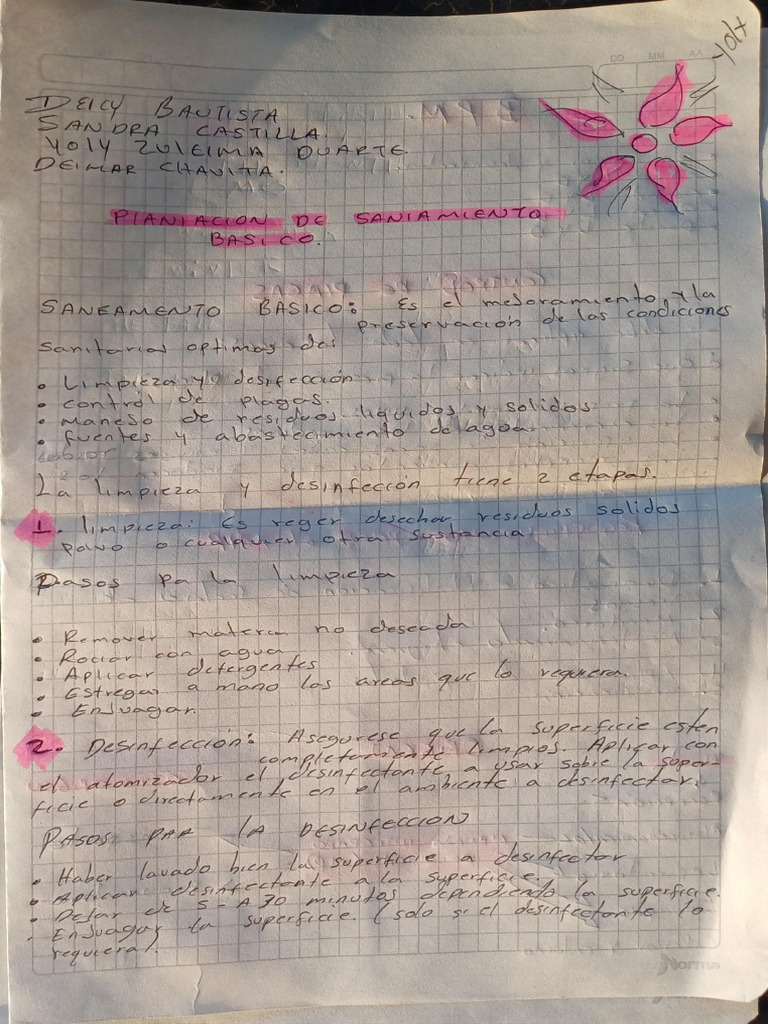 Yoly
DD MM AA
DEICY BAUTISTA
SANDRA CASTILLA.
YOLY ZULEIMA DUARTE.
DEIMAR CHAVITA.
PLANIACION DE SANIAMIENTO
BASICO.
SANEAMENTO BASICO: Es el mejoramiento y la
preservación de las condiciones
sanitarias optimas de:
• Limpieza y desifección
• control de plagas.
• manejo de residuos liquidos y solidos
• fuentes y abastecimiento de agua.
La limpieza y desinfección tiene 2 etapas.
1. limpieza: Es reger desechar residuos solidos
polvo o cualquier otra sustancia
Pasos pa la limpieza
• Remover materia no deseada
• Rociar con agua
• Aplicar detergentes
• Estregar a mano las areas que lo requiera.
• Enjuagar.
2. Desinfección: Asegurese que la superficie esten
completamente limpios. Aplicar con
el atomizador el desinfectante a usar sobre la super-
ficie o directamente en el ambiente a desinfectar.
PASOS PAR LA DESINFECCION
• Haber lavado bien la superficie a desinfectar
• Aplicar desinfectante a la superficie.
• Dejar de 5 - A 30 minutos dependiendo la superficie.
• Enjuagar la superficie. (solo si el desinfectante lo
requiera).
Norma